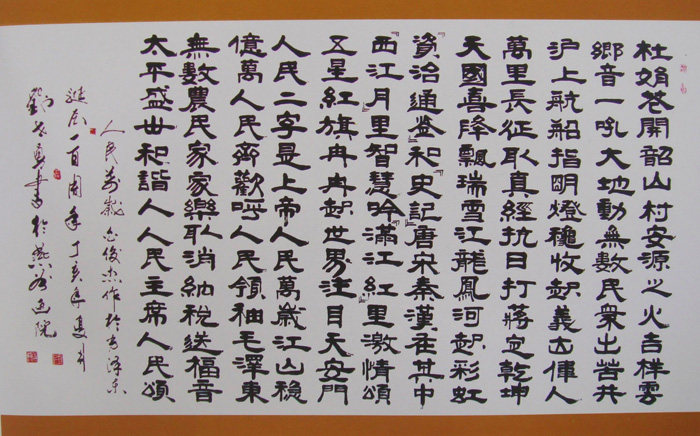 杜娟花開韶山村安源之火吉祥雲
鄉音一吼大地動無數民衆出苦共
沪上航船指明燈穐收起義出偉人
萬里長征取真經抗日打蔣定乾坤
天國喜降飄瑞雪江龍鳳河起彩虹
『資治通鉴』和『史記』唐宋秦漢在其中
『西江月』里智慧吟『滿江紅』里激情頌
五星紅旗冉冉起世界注目天安門
人民二字是上帝人民萬歲江山穩
億萬人民齊歡呼人民領袖毛澤東
無數農民家家樂取消納稅送福音
太平盛世和諧人人民主席人民頌
人民萬歲 俊杰作於毛泽东
誕辰一百周年丁亥年夏月
劉書於画院